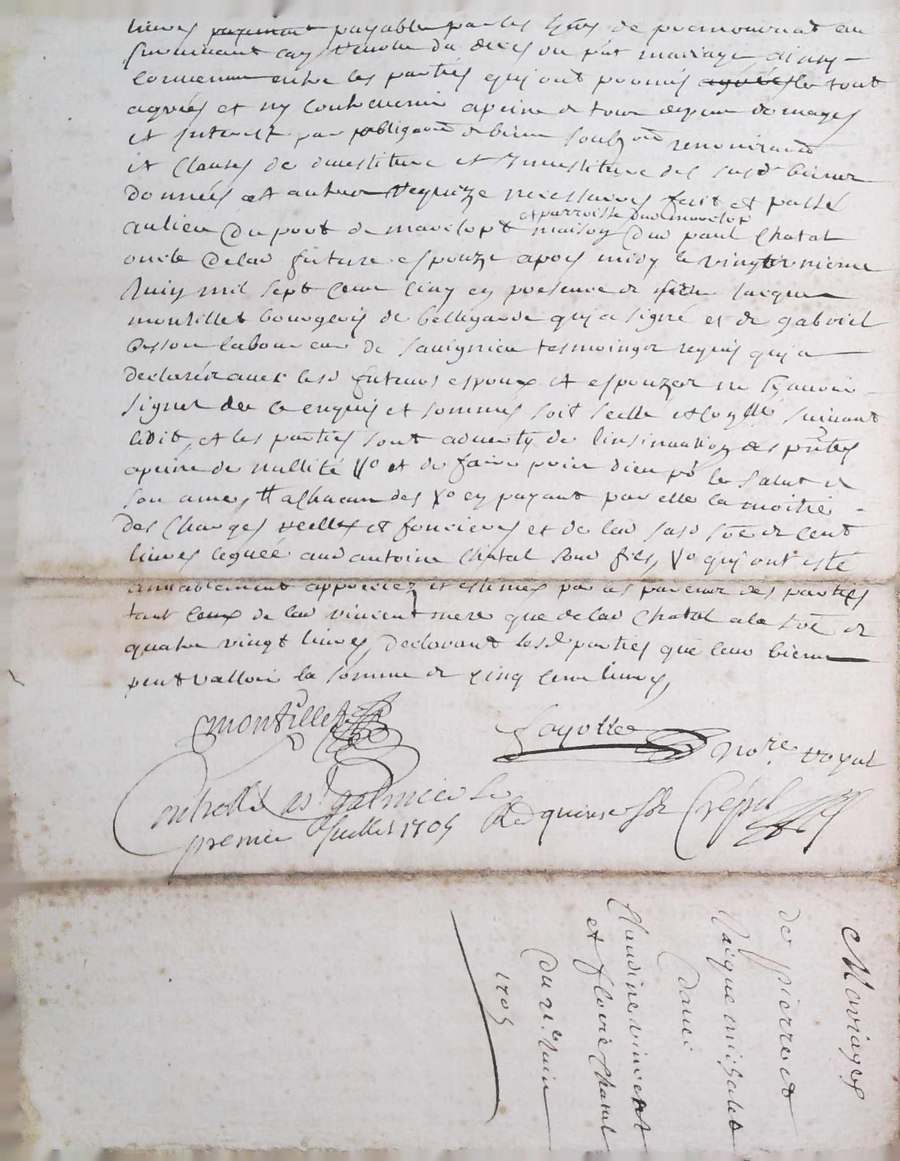 livres payement payable par les
survenant cas de mariage ainsy
convenu entre les parties qui ont promis agréer le tout
agréer et ny contrevenir apeine de tous despens domages
et interest par obligaon de biens soubzon renonciaon
et clauses de devestiture et Investiture des susd biens
donnés et autres requize necessaires fait et passé
et parroisse dud marclopt
au lieu du port de marclopt maison dud paul Chatal
oncle de lad future espouze apres midy le vingt unieme
Juin mil sept cent cinq en presence de sieur Jacques
montillet bourgeois de bellegarde qui a signé et de gabriel
besson laboureur de savignieu tesmoings requis qui a
declaré avec lesd futurs espoux et espouzes ne sçavoir
signer de ce enquis et sommés soit scellé et suivant
ledit, et les parties sont adverty de linsinuation des pntes
apeine de nullité Vo et de faire prier dieu pr le salut de
son ame, a chacun des Vo en payant par elle la moitié
des charges reelles et foncieres et de lad susd soe de cent
livres leguée aud antoine Chatal son fils, Vo qui ont esté
amiablement appreciez et estimés par les parens des parties
tant ceux de lad vincent mere que de lad Chatal a la soe de
quatre vingt livres, declarant lesd parties que leur biens
peut valloir la somme de cinq cent livres,
Montillet
Fayolle
no.re royal
Controllé a st galmier le
premier Juillet 1705
Red quinze s
Crespet
Mariages
de pierre et
Jacque
Claudine vincent
et florie Chatal
du 21e Juin
1705